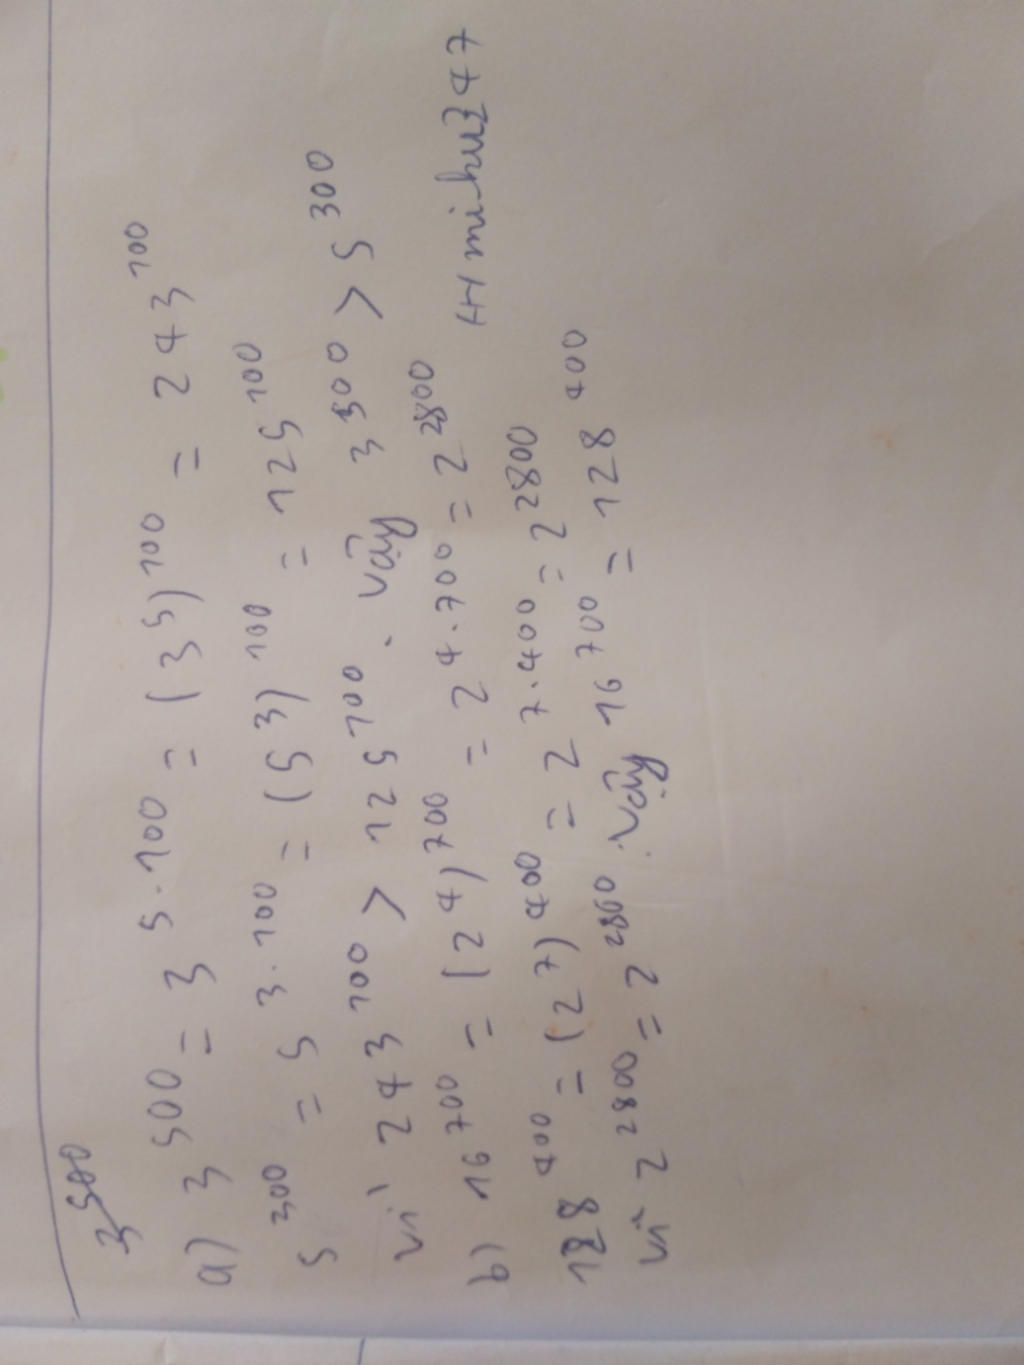 3^500
a) 3^500 = 3^5.100 = (3^5)^100 = 243^100
5^300 = 5^3.100 = (5^3)^100 = 125^100
Vì 243^100 > 125^100. Vậy 3^500 > 5^300
b) 16^700 = (2^4)^700 = 2^4.700 = 2^2800
128^400 = (2^7)^400 = 2^7.400 = 2^2800
Vì 2^2800 = 2^2800. Vậy 16^700 = 128^400